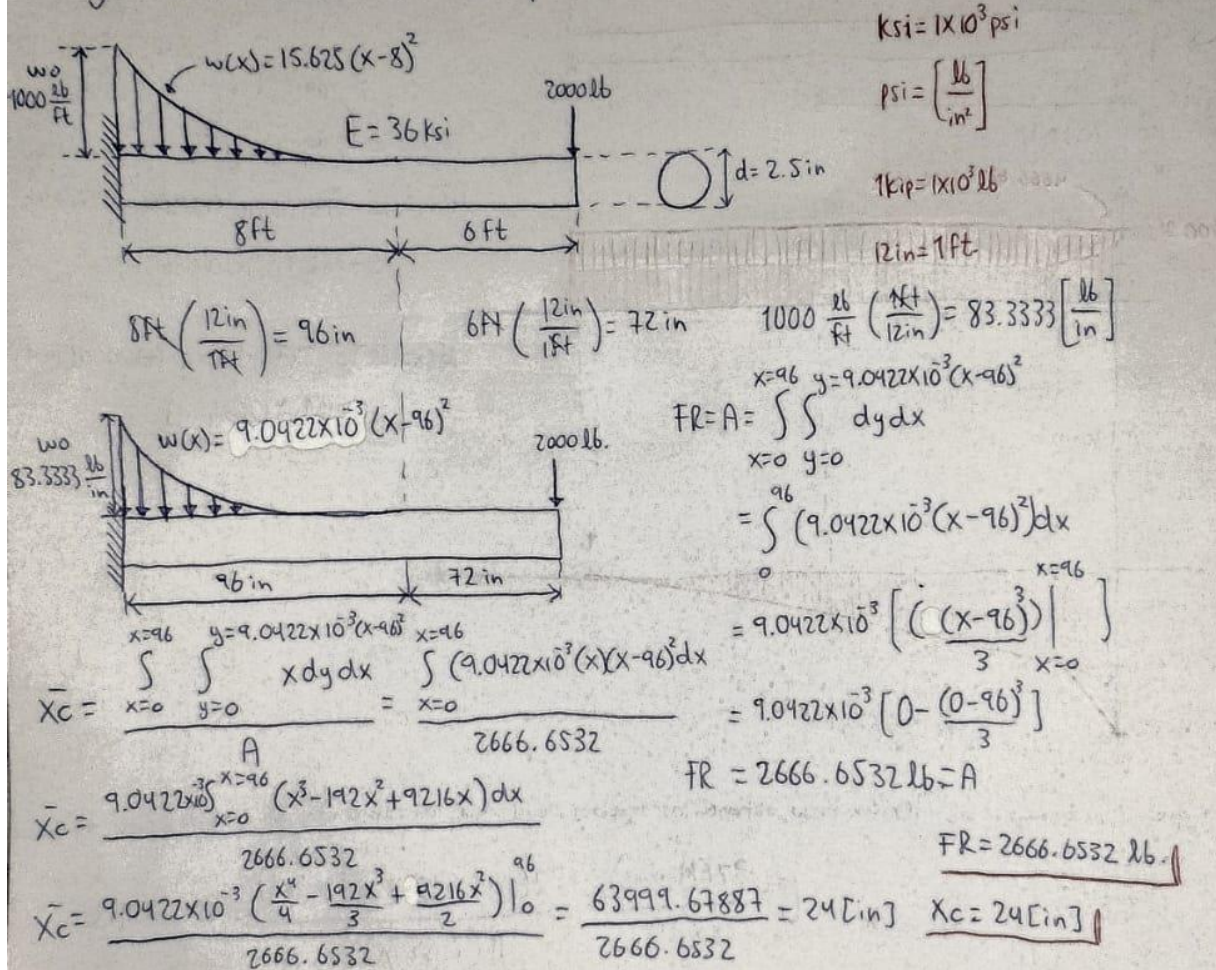 ksi = 1X10³ psi
w(x) = 15.625 (x-8)²
wo
1000 lb/ft
2000 lb
psi = [lb/in²]
E = 36 ksi
d = 2.5 in
1kip = 1x10³ lb
8ft
6 ft
12in = 1ft
8ft (12in/1ft) = 96 in
6ft (12in/1ft) = 72 in
1000 lb/ft (1ft/12in) = 83.3333 [lb/in]
wo
83.3333 lb/in
w(x) = 9.0422x10⁻³ (x-96)²
2000 lb.
96 in
72 in
FR = A = ∫_{x=0}^{x=96} ∫_{y=0}^{y=9.0422x10⁻³(x-96)²} dy dx
= ∫_0^{96} (9.0422x10⁻³(x-96)²)dx
= 9.0422x10⁻³ [((x-96)³)/3 |_{x=0}^{x=96}]
= 9.0422x10⁻³ [0 - (0-96)³/3]
FR = 2666.6532 lb = A
FR = 2666.6532 lb.
x̄c = ∫_{x=0}^{x=96} ∫_{y=0}^{y=9.0422x10⁻³(x-96)²} x dy dx / A = ∫_{x=0}^{x=96} (9.0422x10⁻³(x)(x-96)²dx / 2666.6532
x̄c = 9.0422x10⁻³ ∫_{x=0}^{x=96} (x³-192x²+9216x) dx / 2666.6532
x̄c = 9.0422x10⁻³ (x⁴/4 - 192x³/3 + 9216x²/2)|_0^{96} / 2666.6532 = 63999.67887 / 2666.6532 = 24 [in]
Xc = 24[in]